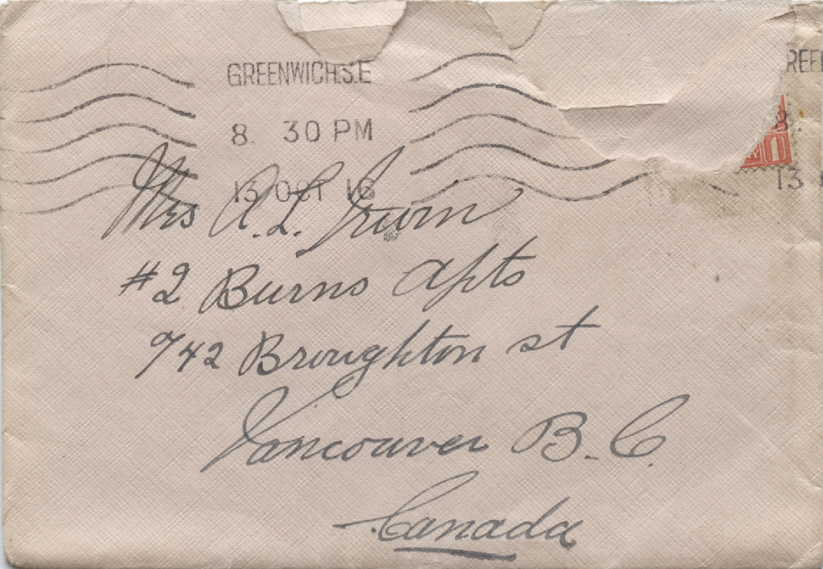 GREENWICH.S.E
8. 30 PM
13 OCT 16
8.
13
Mrs A. L. Irwin
#2 Burns Apts
742 Broughton st
Vancouver B. C.
Canada